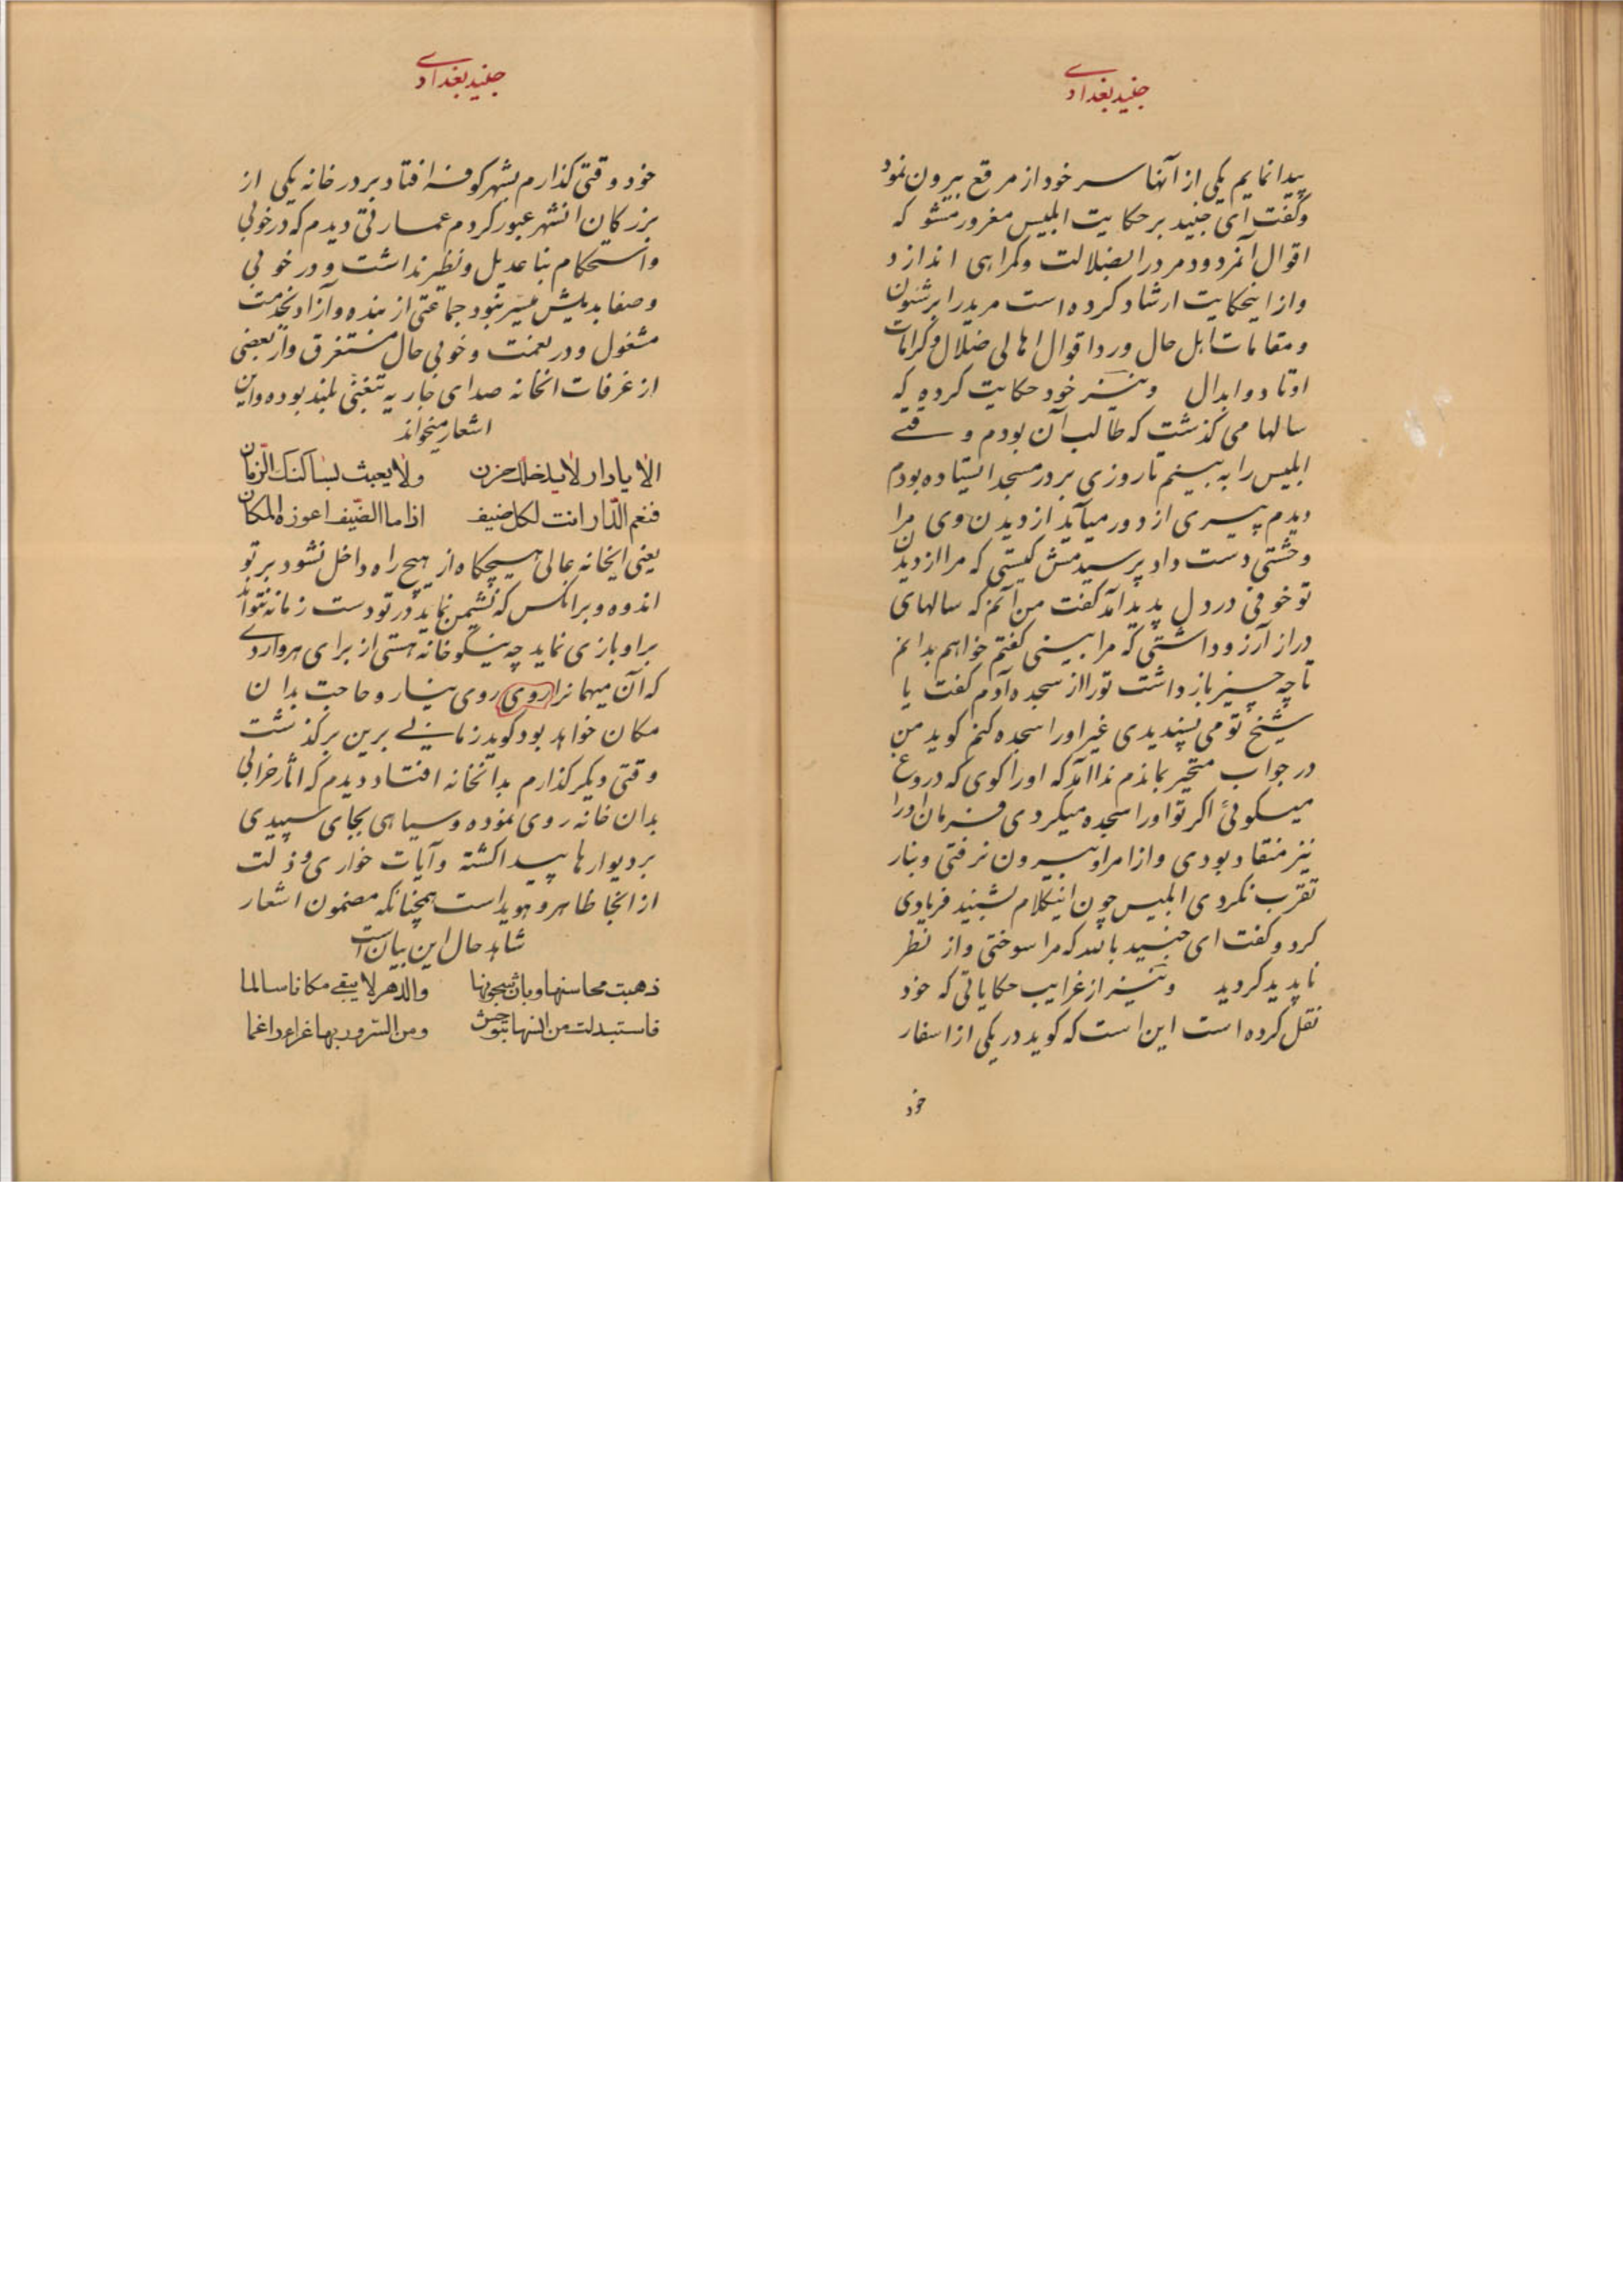 جنید بغدادی
پیدا نمایم یکی از آنها سر خود از مرقع بیرون نمود
و گفت ای جنید بر حکایت ابلیس مغرور مشو که
اقوال آنمردود مرد را بضلالت و کمراهی اندازد
و از اینحکایت ارشاد کرده است مرید را بر شئون
و مقامات اهل حال و رد اقوال اهالی ضلال و کرامات
اوتاد و ابدال و نیز خود حکایت کرده که
سالها می کذشت که طالب آن بودم وقتی
ابلیس را به بینم تا روزی بر در مسجد ایستاده بودم
دیدم پیری از دور میآید از دیدن وی مرا
وحشتی دست داد پرسیدمش کیستی که مرا از دیدن
تو خوفی در دل پدید آمد کفت من آنم که سالهای
دراز آرزو داشتی که مرا بینی کفتم خواهم بدانم
تا چه چیز باز داشت تو را از سجده آدم کفت یا
شیخ تو می پسندیدی غیر او را سجده کنم کوید من
در جواب متحیر بماندم ندا آمد که او را کوی که دروغ
میکوئی اکر تو او را سجده میکردی فرمان او را
نیز منقاد بودی و از امر او بیرون نرفتی و بنار
تقرب نکردی ابلیس چون اینکلام بشنید فریادی
کرد و کفت ای جنید بالله که مرا سوختی و از نظر
ناپدید کردید و نیز از غرایب حکایاتی که خود
نقل کرده است این است که کوید در یکی از اسفار
خود
جنید بغدادی
خود وقتی کذارم بشهر کوفه افتاد بر در خانه یکی از
بزرکان انشهر عبور کردم عمارتی دیدم که در خوبی
و استحکام بنا عدیل و نظیر نداشت و در خوبی
و صفا بدیلش میسر نبود جماعتی از بنده و آزاد بخدمت
مشغول و در نعمت و خوبی حال مستغرق و از بعضی
از غرفات انخانه صدای جاریه بتغنی بلند بوده و این
اشعار میخواند
الا یا دار لا یدخلک حزن ولا یعبث بساکنک الزمان
فنعم الدار انت لکل ضیف اذا ما الضیف اعوزه المکان
یعنی ایخانه عالی هیچکاه از هیچ راه داخل نشود بر تو
اندوه و بر انکس که نشیمن نماید در تو دست زمانه نتواند
بر او بازی نماید چه نیکو خانه هستی از برای هر واردی
که آن میهمانرا روی روی نیاز و حاجت بدان
مکان خواهد بود کوید زمانی برین برکذشت
وقتی دیکر کذارم بدانخانه افتاد دیدم که اثار خرابی
بدان خانه روی نموده و سیاهی بجای سپیدی
بر دیوارها پیدا کشته و آیات خواری و ذلت
از انجا ظاهر و هویداست همچنانکه مضمون اشعار
شاهد حال این بیان است
ذهبت محاسنها وبان شجونها والدهر لا یبقی مکانا سالما
فاستبدلت من انسها بتوحش ومن السرور بها عزاء داغما